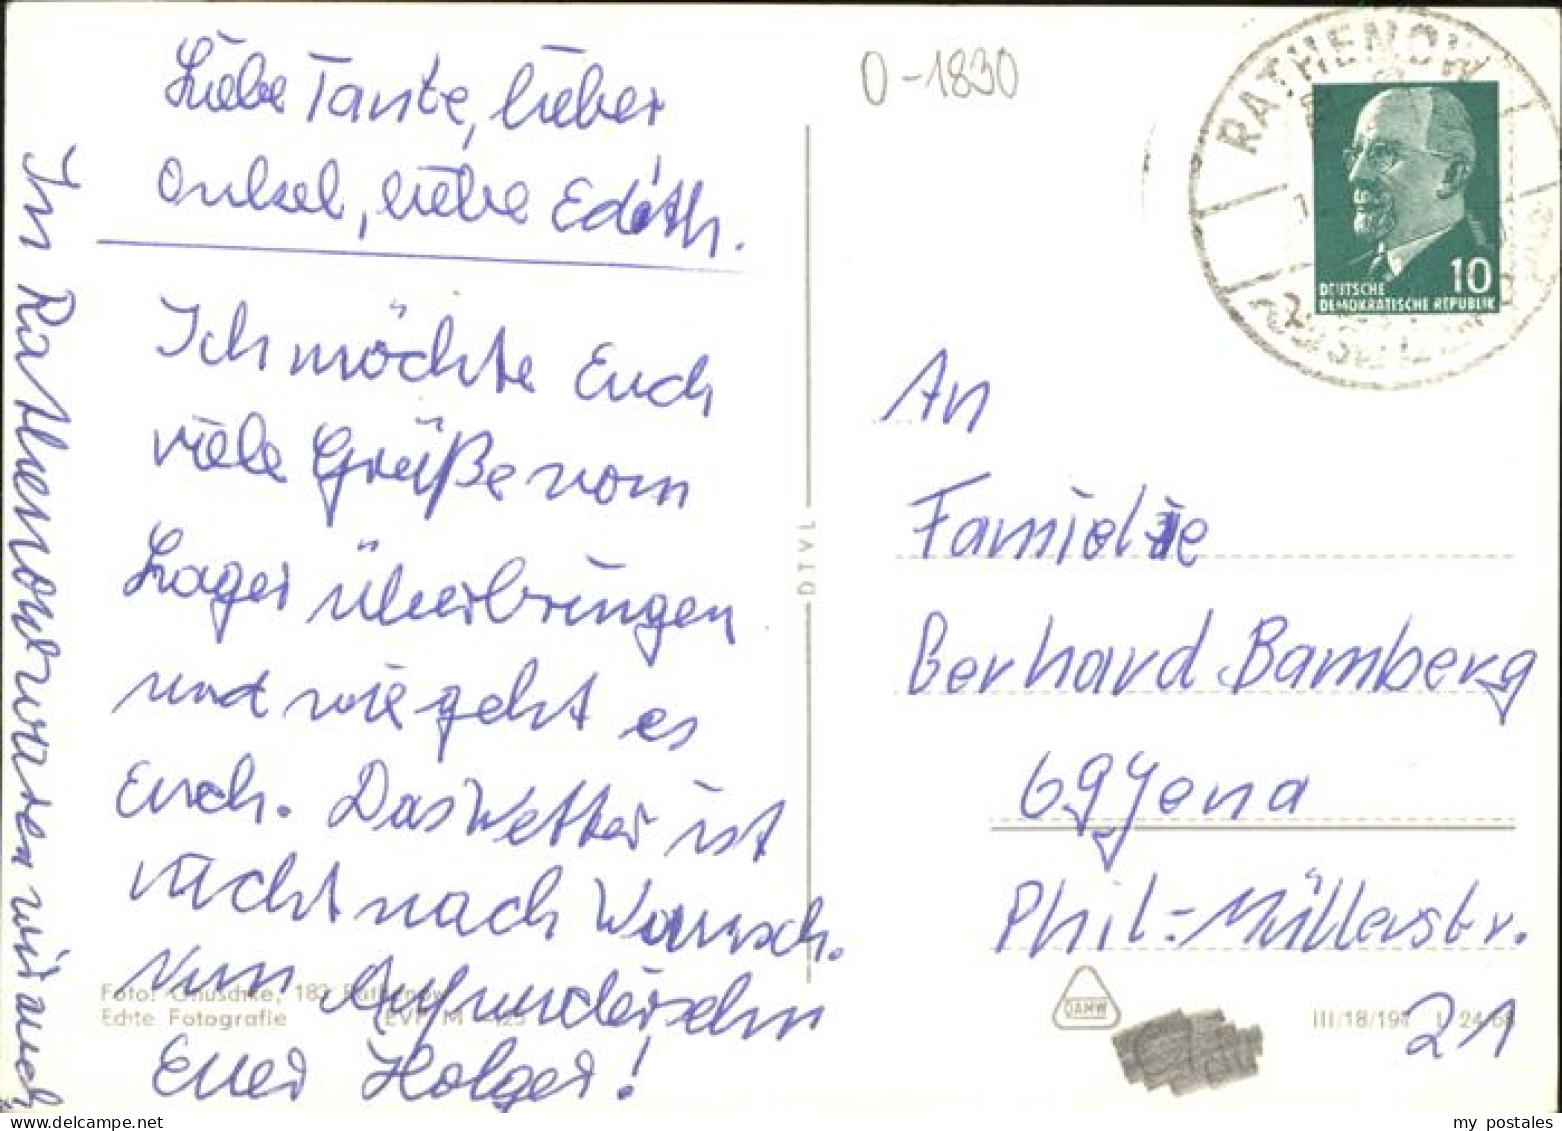 Liebe Tante, lieber
Onkel, liebe Edith.
Ich möchte Euch
viele Grüße vom
Lager überbringen
und wie geht es
Euch. Das Wetter ist
nicht nach Wunsch.
Nun Aufwiedersehn
Euer Holger!
In Rathenow waren wir auch
Foto: 183 Rathenow
Echte Fotografie EVP M -,25
DTVL
0-1830
RATHENOW
10
DEUTSCHE
DEMOKRATISCHE REPUBLIK
An
Familie
Berhard Bamberg
69 Jena
Phil-Müllerstr.
21
DAMW
III/18/197
my postales